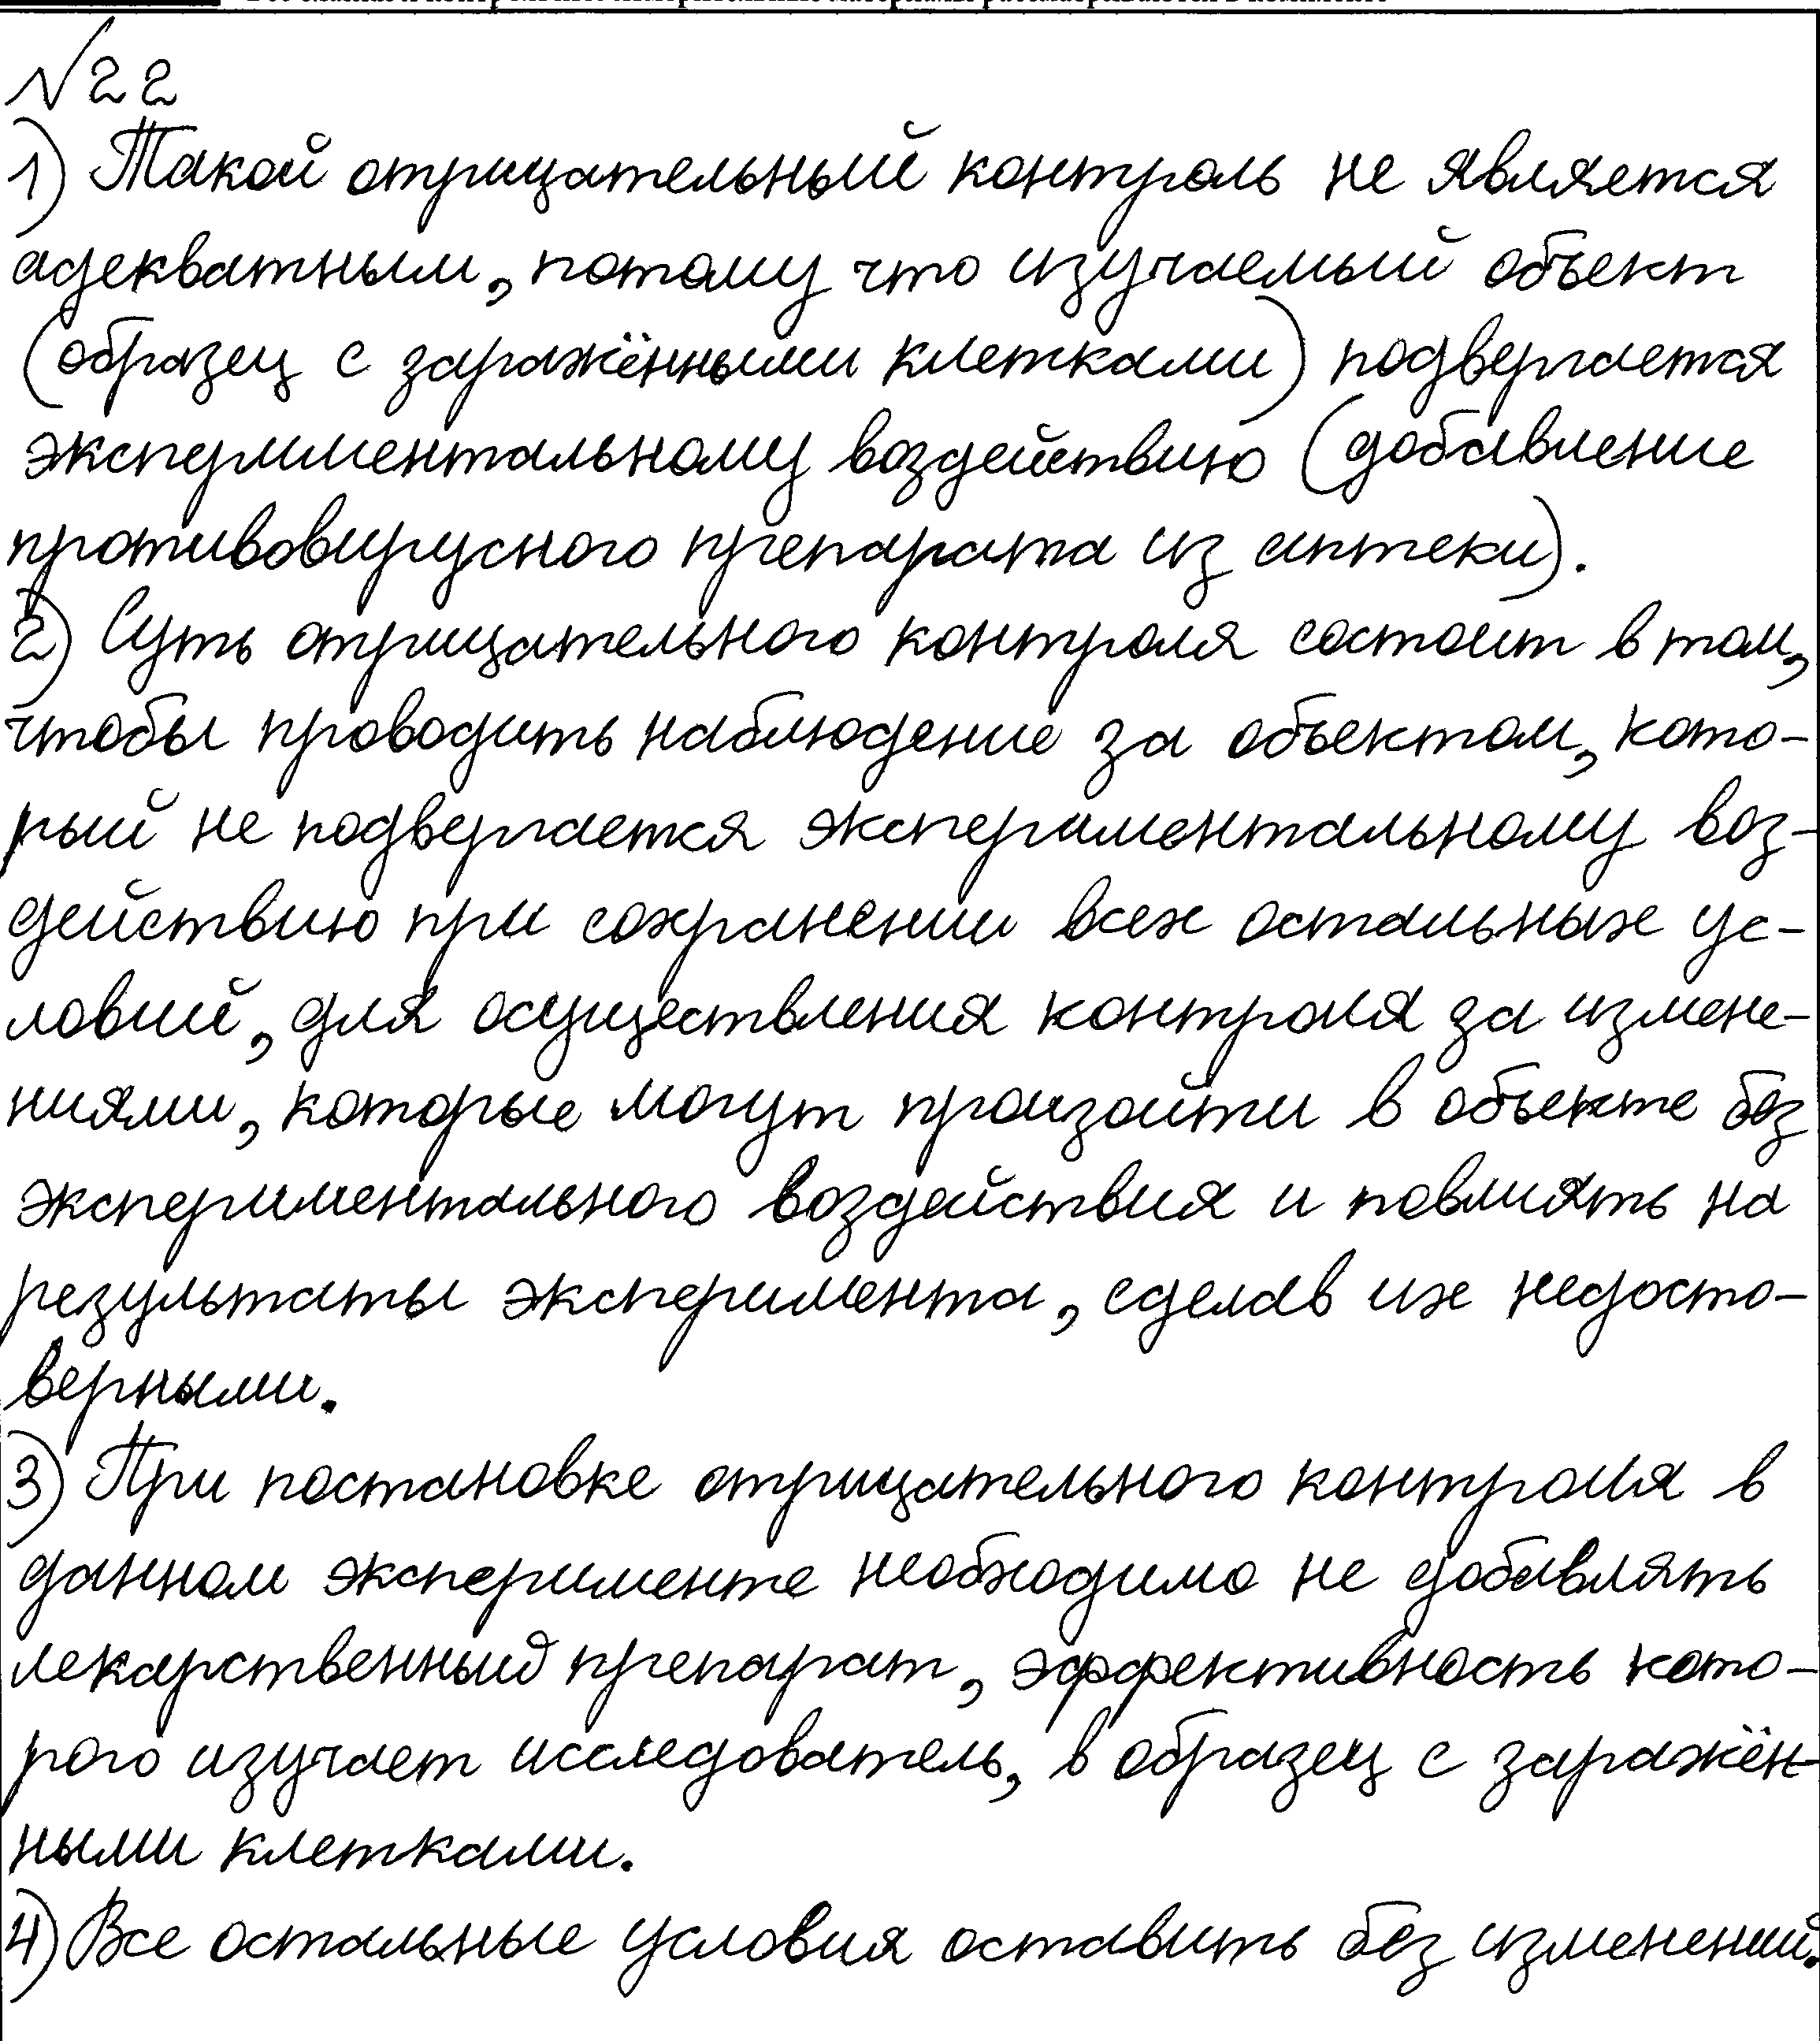 №22
1) Такой отрицательный контроль не является
адекватным, потому что изучаемый объект
(образец с заражёнными клетками) подвергается
экспериментальному воздействию (добавление
противовирусного препарата из аптеки).
2) Суть отрицательного контроля состоит в том,
чтобы проводить наблюдение за объектом, кото-
рый не подвергается экспериментальному воз-
действию при сохранении всех остальных ус-
ловий, для осуществления контроля за измене-
ниями, которые могут произойти в объекте без
экспериментального воздействия и повлиять на
результаты эксперимента, сделав их недосто-
верными.
3) При постановке отрицательного контроля в
данном эксперименте необходимо не добавлять
лекарственный препарат, эффективность кото-
рого изучает исследователь, в образец с заражён-
ными клетками.
4) Все остальные условия оставить без изменений.